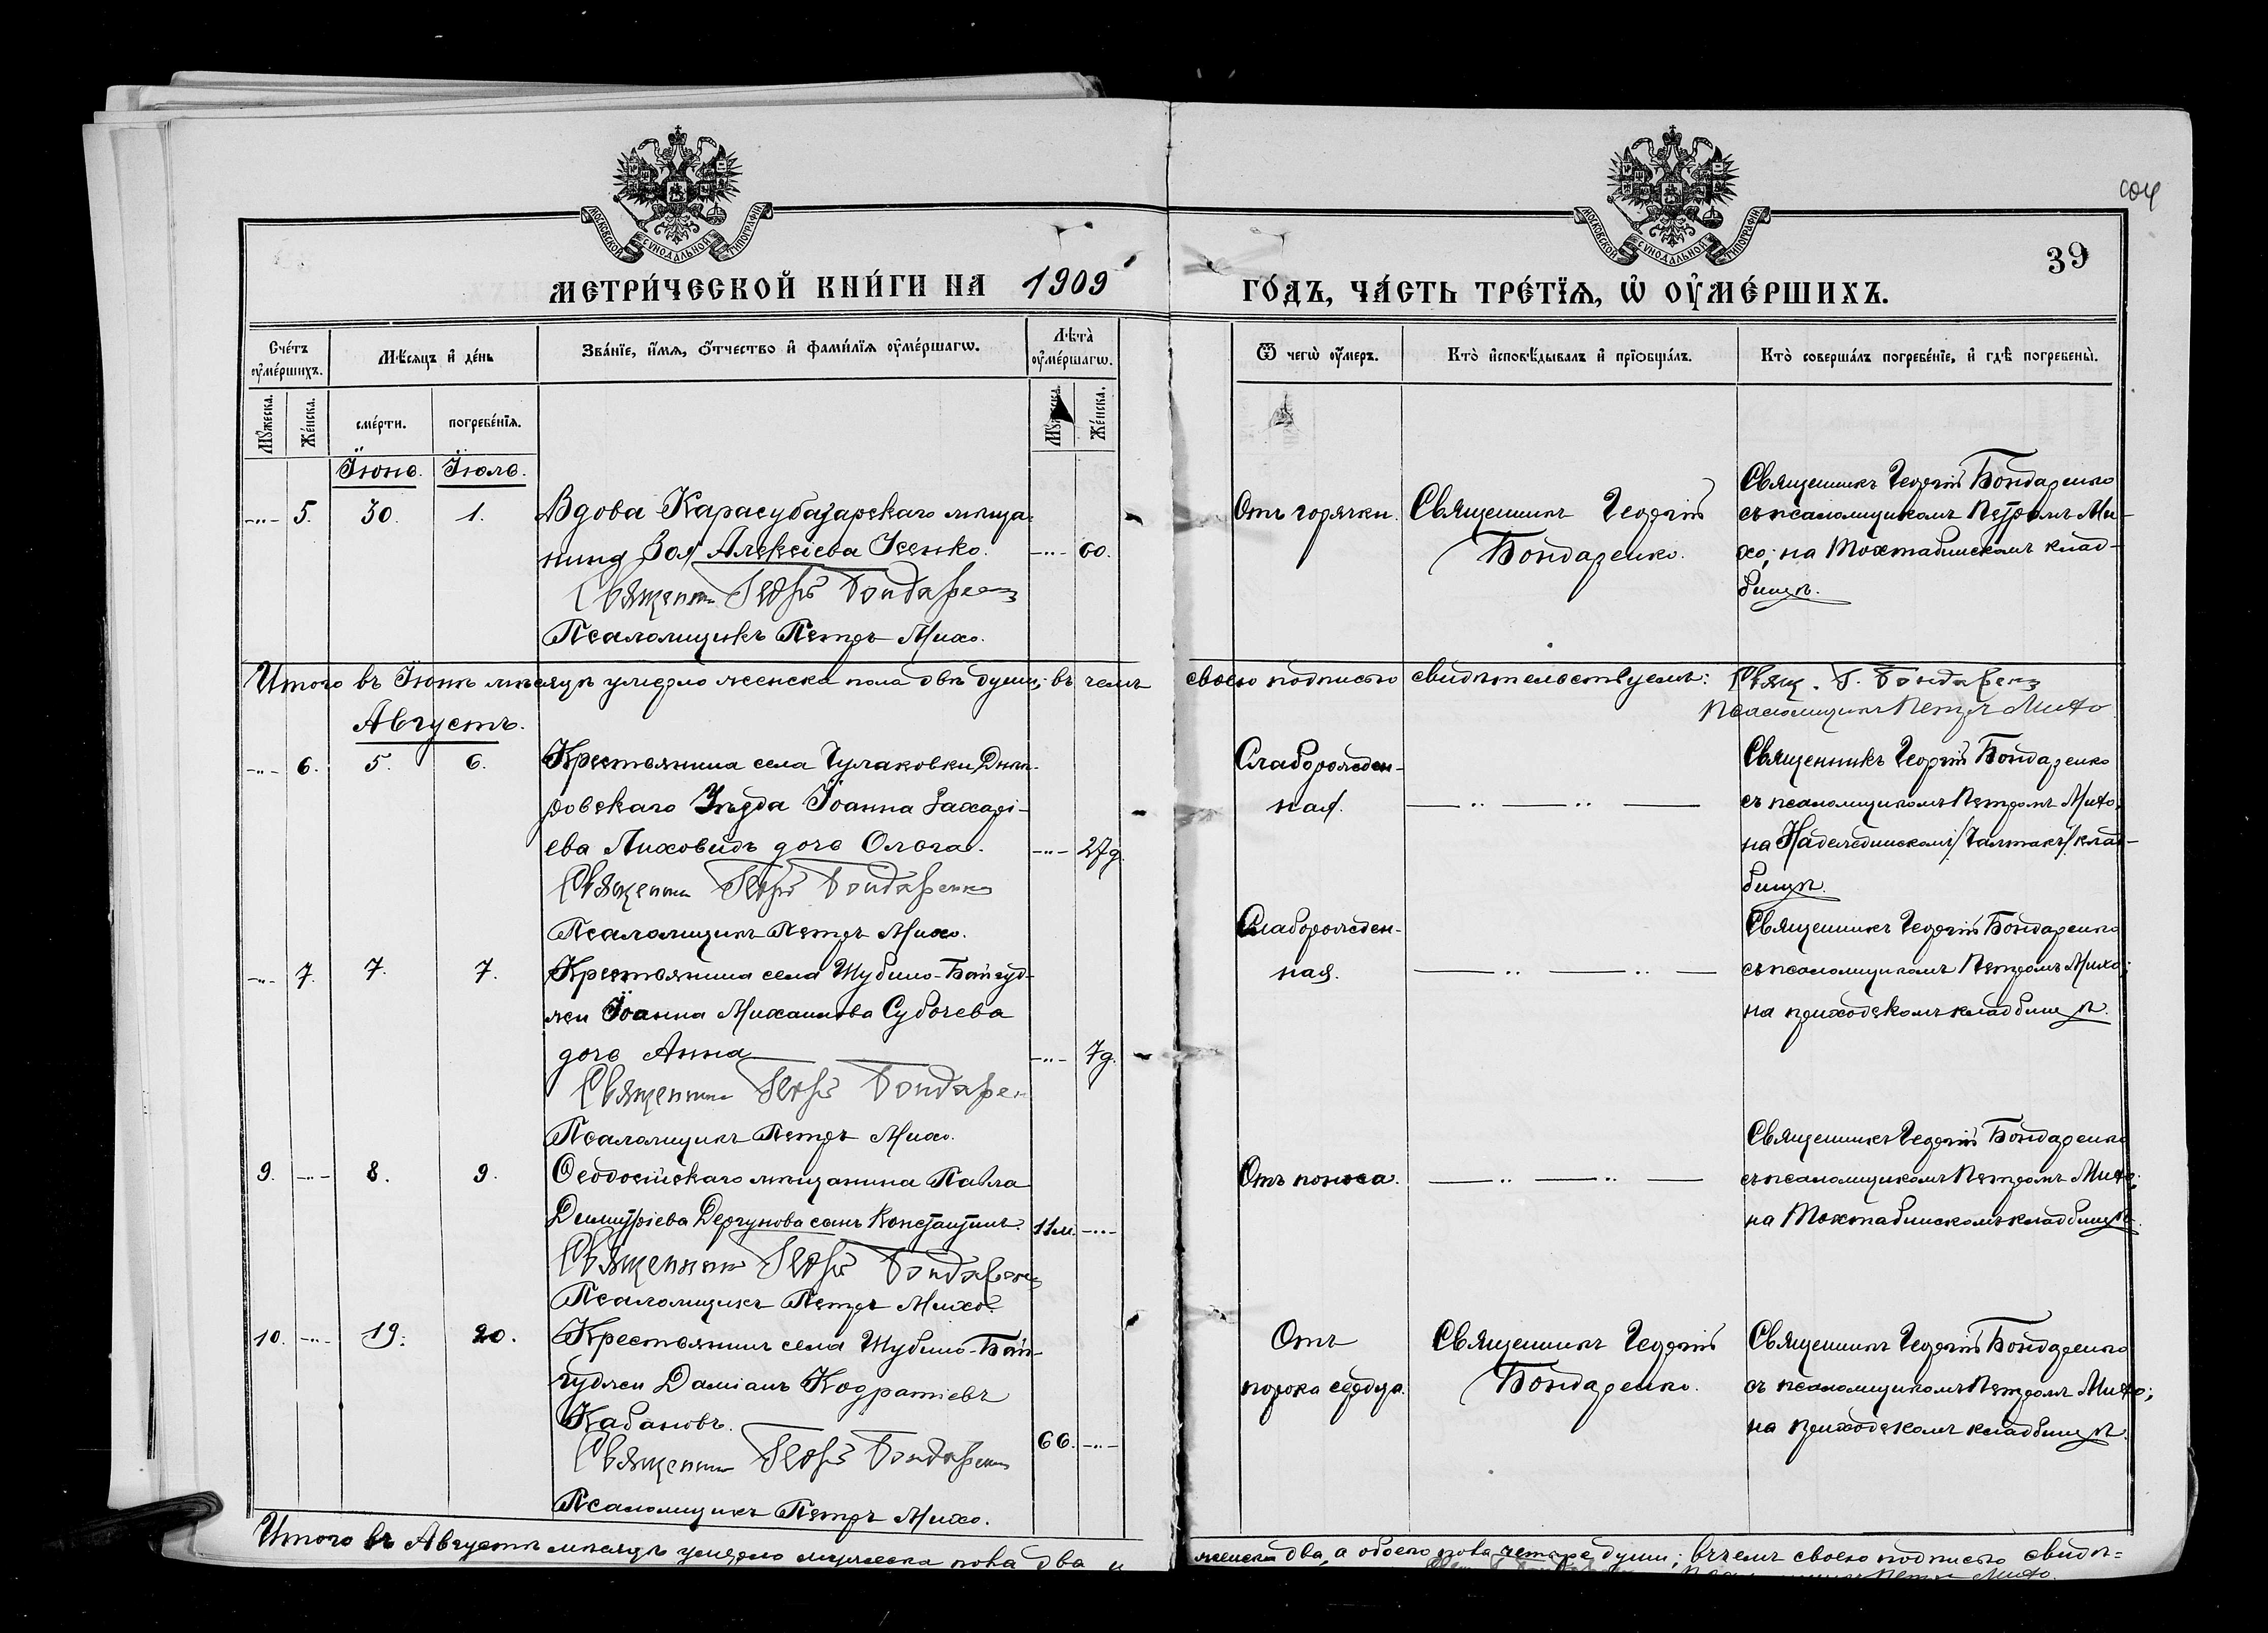 МОСКОВСКОЙ СѴНОДАЛЬНОЙ ТИПОГРАФІИ
МОСКОВСКОЙ СѴНОДАЛЬНОЙ ТИПОГРАФІИ
39
МЕТРИ́ЧЕСКОЙ КНИ́ГИ НА 1909 ГО́ДЪ, ЧА́СТЬ ТРЕ́ТЇѦ, Ѡ҆ ОУ҆МЕ́РШИХЪ.
Сче́тъ оу҆ме́ршихъ.
Мѣ́сяцъ и҆ де́нь
Зва́нїе, и҆́мѧ, ѻ҆́тчество и҆ фами́лїѧ оу҆ме́ршагѡ.
Лѣта̀ оу҆ме́ршагѡ.
Ѿ чегѡ̀ оу҆́меръ.
Кто̀ и҆сповѣ́дывалъ и҆ прїѡбща́лъ.
Кто̀ соверша́лъ погребе́нїе, и҆ гдѣ̀ погребены̀.
Мꙋ́жеска.
Же́нска.
сме́рти.
погребе́нїѧ.
Мꙋ́жеска.
Же́нска.
Їюнь. Їюль.
-..- 5. 30. 1. Вдова Карасубазарскаго мѣща-
нина Зоя Алексіева Усенко. -..- 60.
Священникъ Георгій Бондаренко
Псаломщикъ Петръ Михо.
Отъ горячки.
Священникъ Георгій
Бондаренко.
Священникъ Георгій Бондаренко
съ псаломщикомъ Петромъ Ми-
хо; на Тохтабинскомъ клад-
бищѣ.
Итого въ Їюнѣ мѣсяцѣ умерло женска пола двѣ души; въ чемъ своею подписью свидѣтельствуемъ: Свящ. Г. Бондаренко
Псаломщикъ Петръ Михо
Августъ.
-..- 6. 5. 6. Крестьянина села Чулаковки, Днѣп-
ровскаго Уѣзда Їоанна Захарі-
ева Лиховидъ дочь Ольга. -..- 27д.
Священникъ Георгій Бондаренко
Псаломщикъ Петръ Михо.
Слаборожден-
ная.
Священникъ Георгій Бондаренко
съ псаломщикомъ Петромъ Михо,
на клад-
бищѣ.
-..- 7. 7. 7. Крестьянина села Шубино-Байгуд-
жи Їоанна Михаилова Субочева
дочь Анна -..- 7д.
Священникъ Георгій Бондаренко
Псаломщикъ Петръ Михо.
Слаборожден-
ная.
Священникъ Георгій Бондаренко
съ псаломщикомъ Петромъ Михо;
на приходскомъ кладбищѣ.
9. -..- 8. 9. Ѳеодосійскаго мѣщанина Павла
Димитріева Дергунова сынъ Константинъ. 11м. -..-
Священникъ Георгій Бондаренко
Псаломщикъ Петръ Михо.
Отъ поноса.
Священникъ Георгій Бондаренко
съ псаломщикомъ Петромъ Михо;
на Тохтабинскомъ кладбищѣ.
10. -..- 19. 20. Крестьянинъ села Шубино-Бай-
гуджи Даміанъ Кодратіевъ
Кабановъ. 66. -..-
Священникъ Георгій Бондаренко
Псаломщикъ Петръ Михо.
Отъ
порока сердца.
Священникъ Георгій
Бондаренко.
Священникъ Георгій Бондаренко
съ псаломщикомъ Петромъ Михо;
на приходскомъ кладбищѣ.
Итого въ Августѣ мѣсяцѣ умерло мужеска пола два и женска два, а обоего пола четыре души; въ чемъ своею подписью свидѣ-
Петръ Михо.